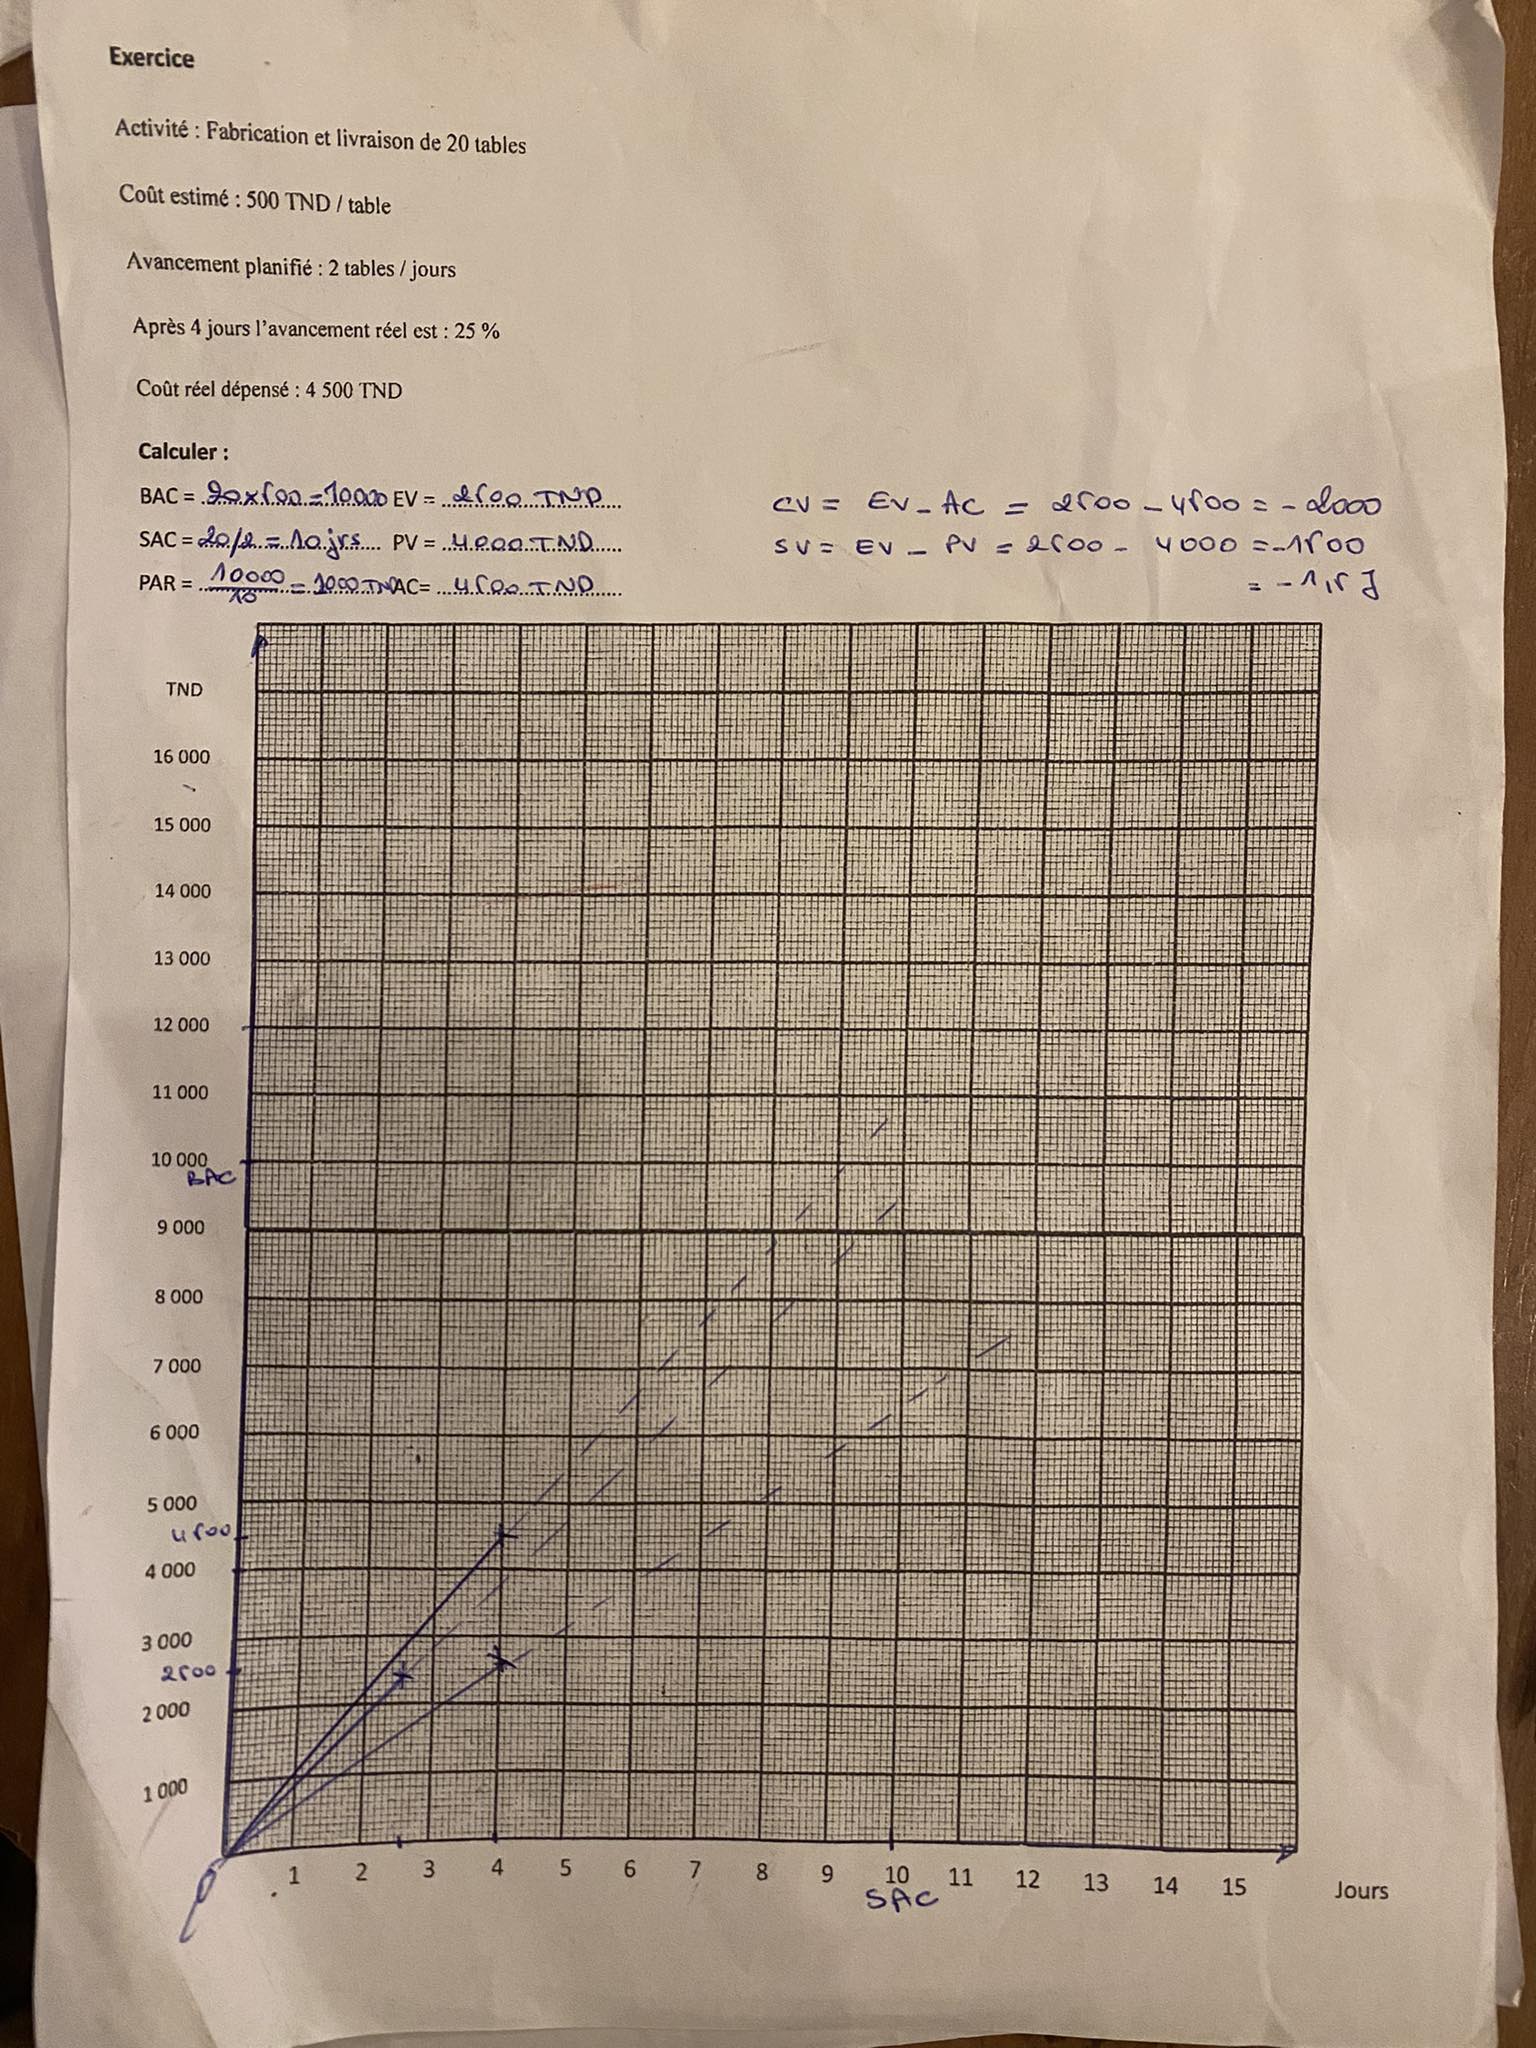 Exercice
Activité : Fabrication et livraison de 20 tables
Coût estimé : 500 TND / table
Avancement planifié : 2 tables / jours
Après 4 jours l'avancement réel est : 25 %
Coût réel dépensé : 4 500 TND
Calculer :
BAC = 20x500=10000 EV = 2500 TND
CV = EV - AC = 2500 - 4500 = - 2000
SAC = 20/2 = 10 jrs PV = 4000 TND
SV = EV - PV = 2500 - 4000 = -1500
PAR = 10000/10 = 1000 TND AC= 4500 TND
= - 1,5 J
TND
16 000
15 000
14 000
13 000
12 000
11 000
10 000
BAC
9 000
8 000
7 000
6 000
5 000
4500
4 000
3 000
2500
2 000
1 000
1 2 3 4 5 6 7 8 9 10 11 12 13 14 15 Jours
SAC